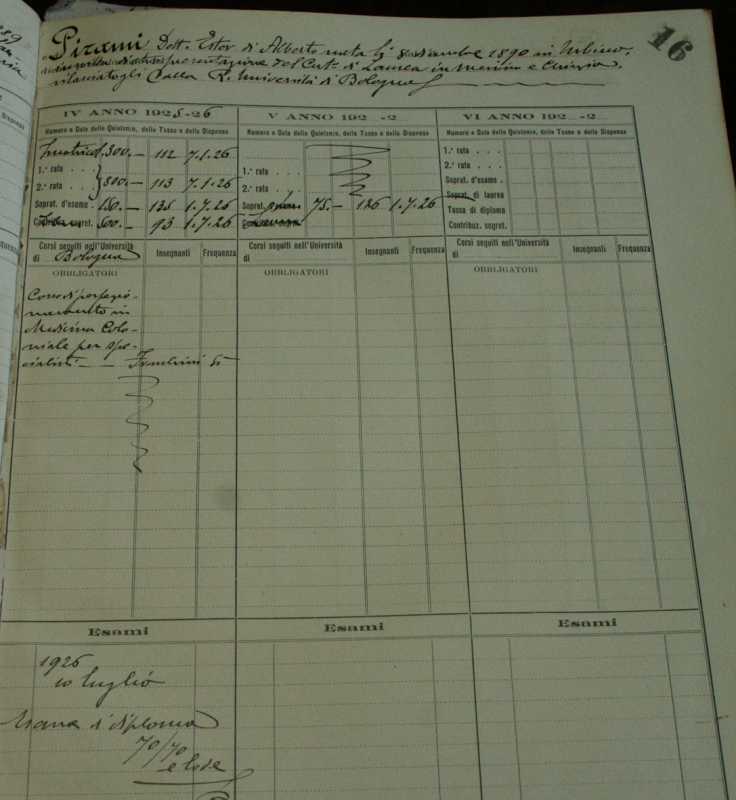 16
Pirami Dott. Ester di Alberto nata li 8 dicembre 1890 in Urbino,
presentazione del Cert. di Laurea in Medicina e Chirurgia,
rilasciatogli dalla R. Università di Bologna
IV ANNO 1925-26 V ANNO 192 -2 VI ANNO 192 -2
Numero e Data delle Quietanze, delle Tasse e delle Dispense Numero e Data delle Quietanze, delle Tasse e delle Dispense Numero e Data delle Quietanze, delle Tasse e delle Dispense
Immatricol. 300.— 112 7.1.26
1.ª rata 1.ª rata 1.ª rata
2.ª rata 800.— 113 7.1.26 2.ª rata 2.ª rata
Soprat. d'esame 150.— 135 1.7.26 Soprat. 75.— 136 1.7.26 Soprat. d'esame
Soprat. di laurea
Tassa di diploma
segret. 600.— 93 1.7.26 Contribuz. segret.
Corsi seguiti nell'Università Insegnanti Frequenza Corsi seguiti nell'Università Insegnanti Frequenza Corsi seguiti nell'Università Insegnanti Frequenza
di Bologna di di
OBBLIGATORI OBBLIGATORI OBBLIGATORI
Corso di perfezio-
namento in
Medicina Colo-
niale per spe-
cialisti — Franchini G
Esami Esami Esami
1926
10 luglio
Esame di diploma
70/70
e lode